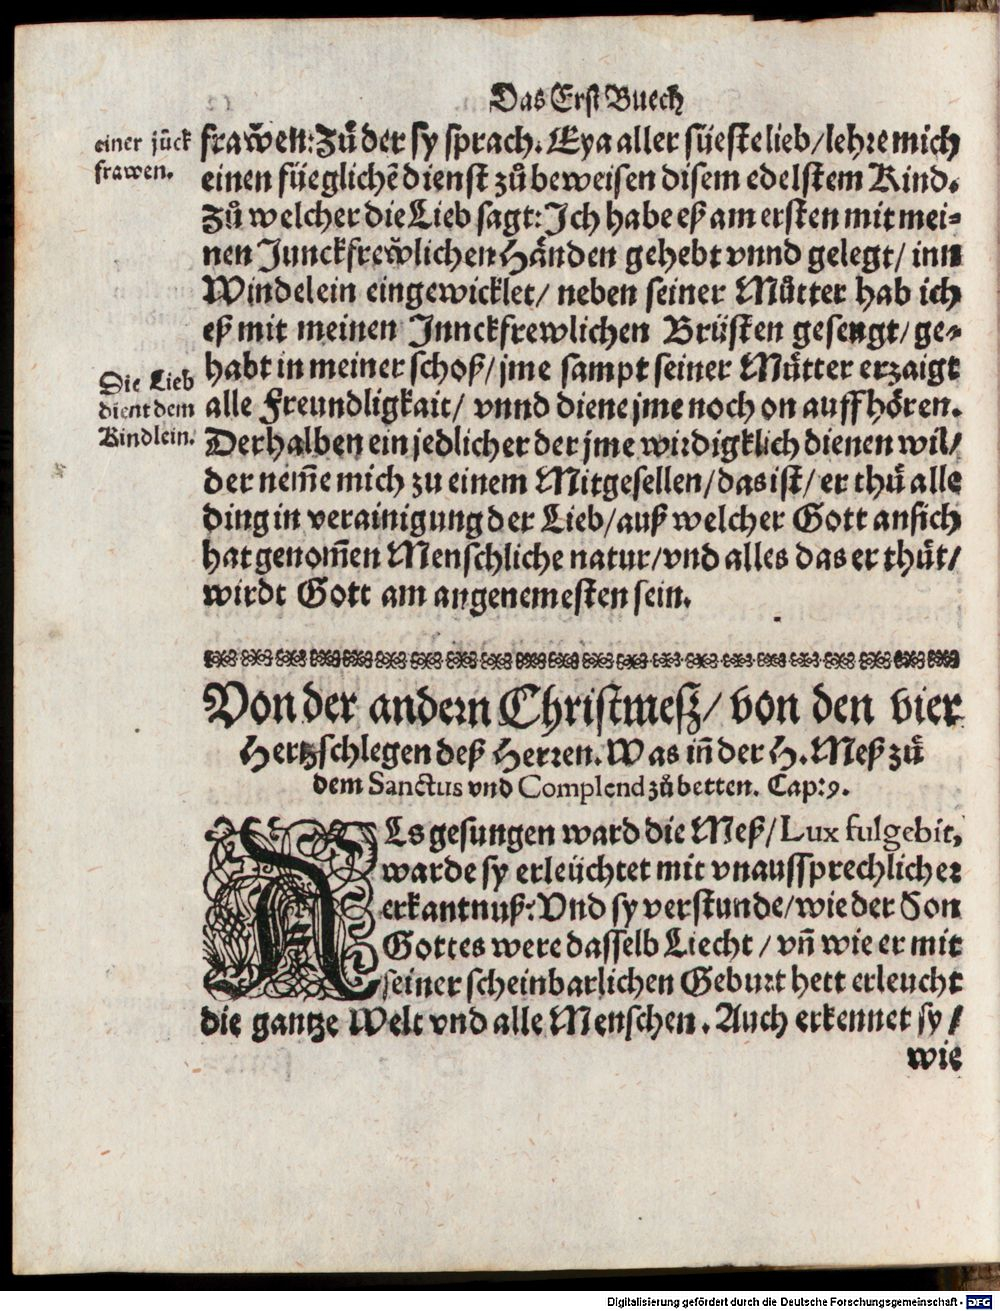 Das Erst Buech
einer jūck
frawen.
frawen: Zů der sy sprach. Eya aller süeste lieb/ lehre mich
einen füeglichē dienst zů beweisen disem edelstem Kind.
Zů welcher die Lieb sagt: Ich habe eß am ersten mit mei-
nen Junckfrewlichen Händen gehebt vnnd gelegt/ inn
Windelein eingewicklet/ neben seiner Můtter hab ich
eß mit meinen Jnnckfrewlichen Brüsten geseugt/ ge-
habt in meiner schoß/ jme sampt seiner Můtter erzaigt
Die Lieb
dient dem
Kindlein.
alle Freundligkait/ vnnd diene jme noch on auffhören.
Derhalben ein jedlicher der jme wirdigklich dienen wil/
der nem̄e mich zu einem Mitgesellen/ das ist/ er thů alle
ding in verainigung der Lieb/ auß welcher Gott an sich
hat genom̄en Menschliche natur/ vnd alles das er thůt/
wirdt Gott am angenemesten sein.
Von der andern Christmeß/ von den vier
Hertzschlegen deß Herren. Was in̄ der H. Meß zů
dem Sanctus vnd Complend zů betten. Cap: 9.
ALs gesungen ward die Meß/ Lux fulgebit,
warde sy erleüchtet mit vnaussprechlicher
erkantnuß: Vnd sy verstunde/ wie der Son
Gottes were dasselb Liecht / vn̄ wie er mit
seiner scheinbarlichen Geburt hett erleucht
die gantze Welt vnd alle Menschen. Auch erkennet sy/
wie
Digitalisierung gefördert durch die Deutsche Forschungsgemeinschaft - DFG